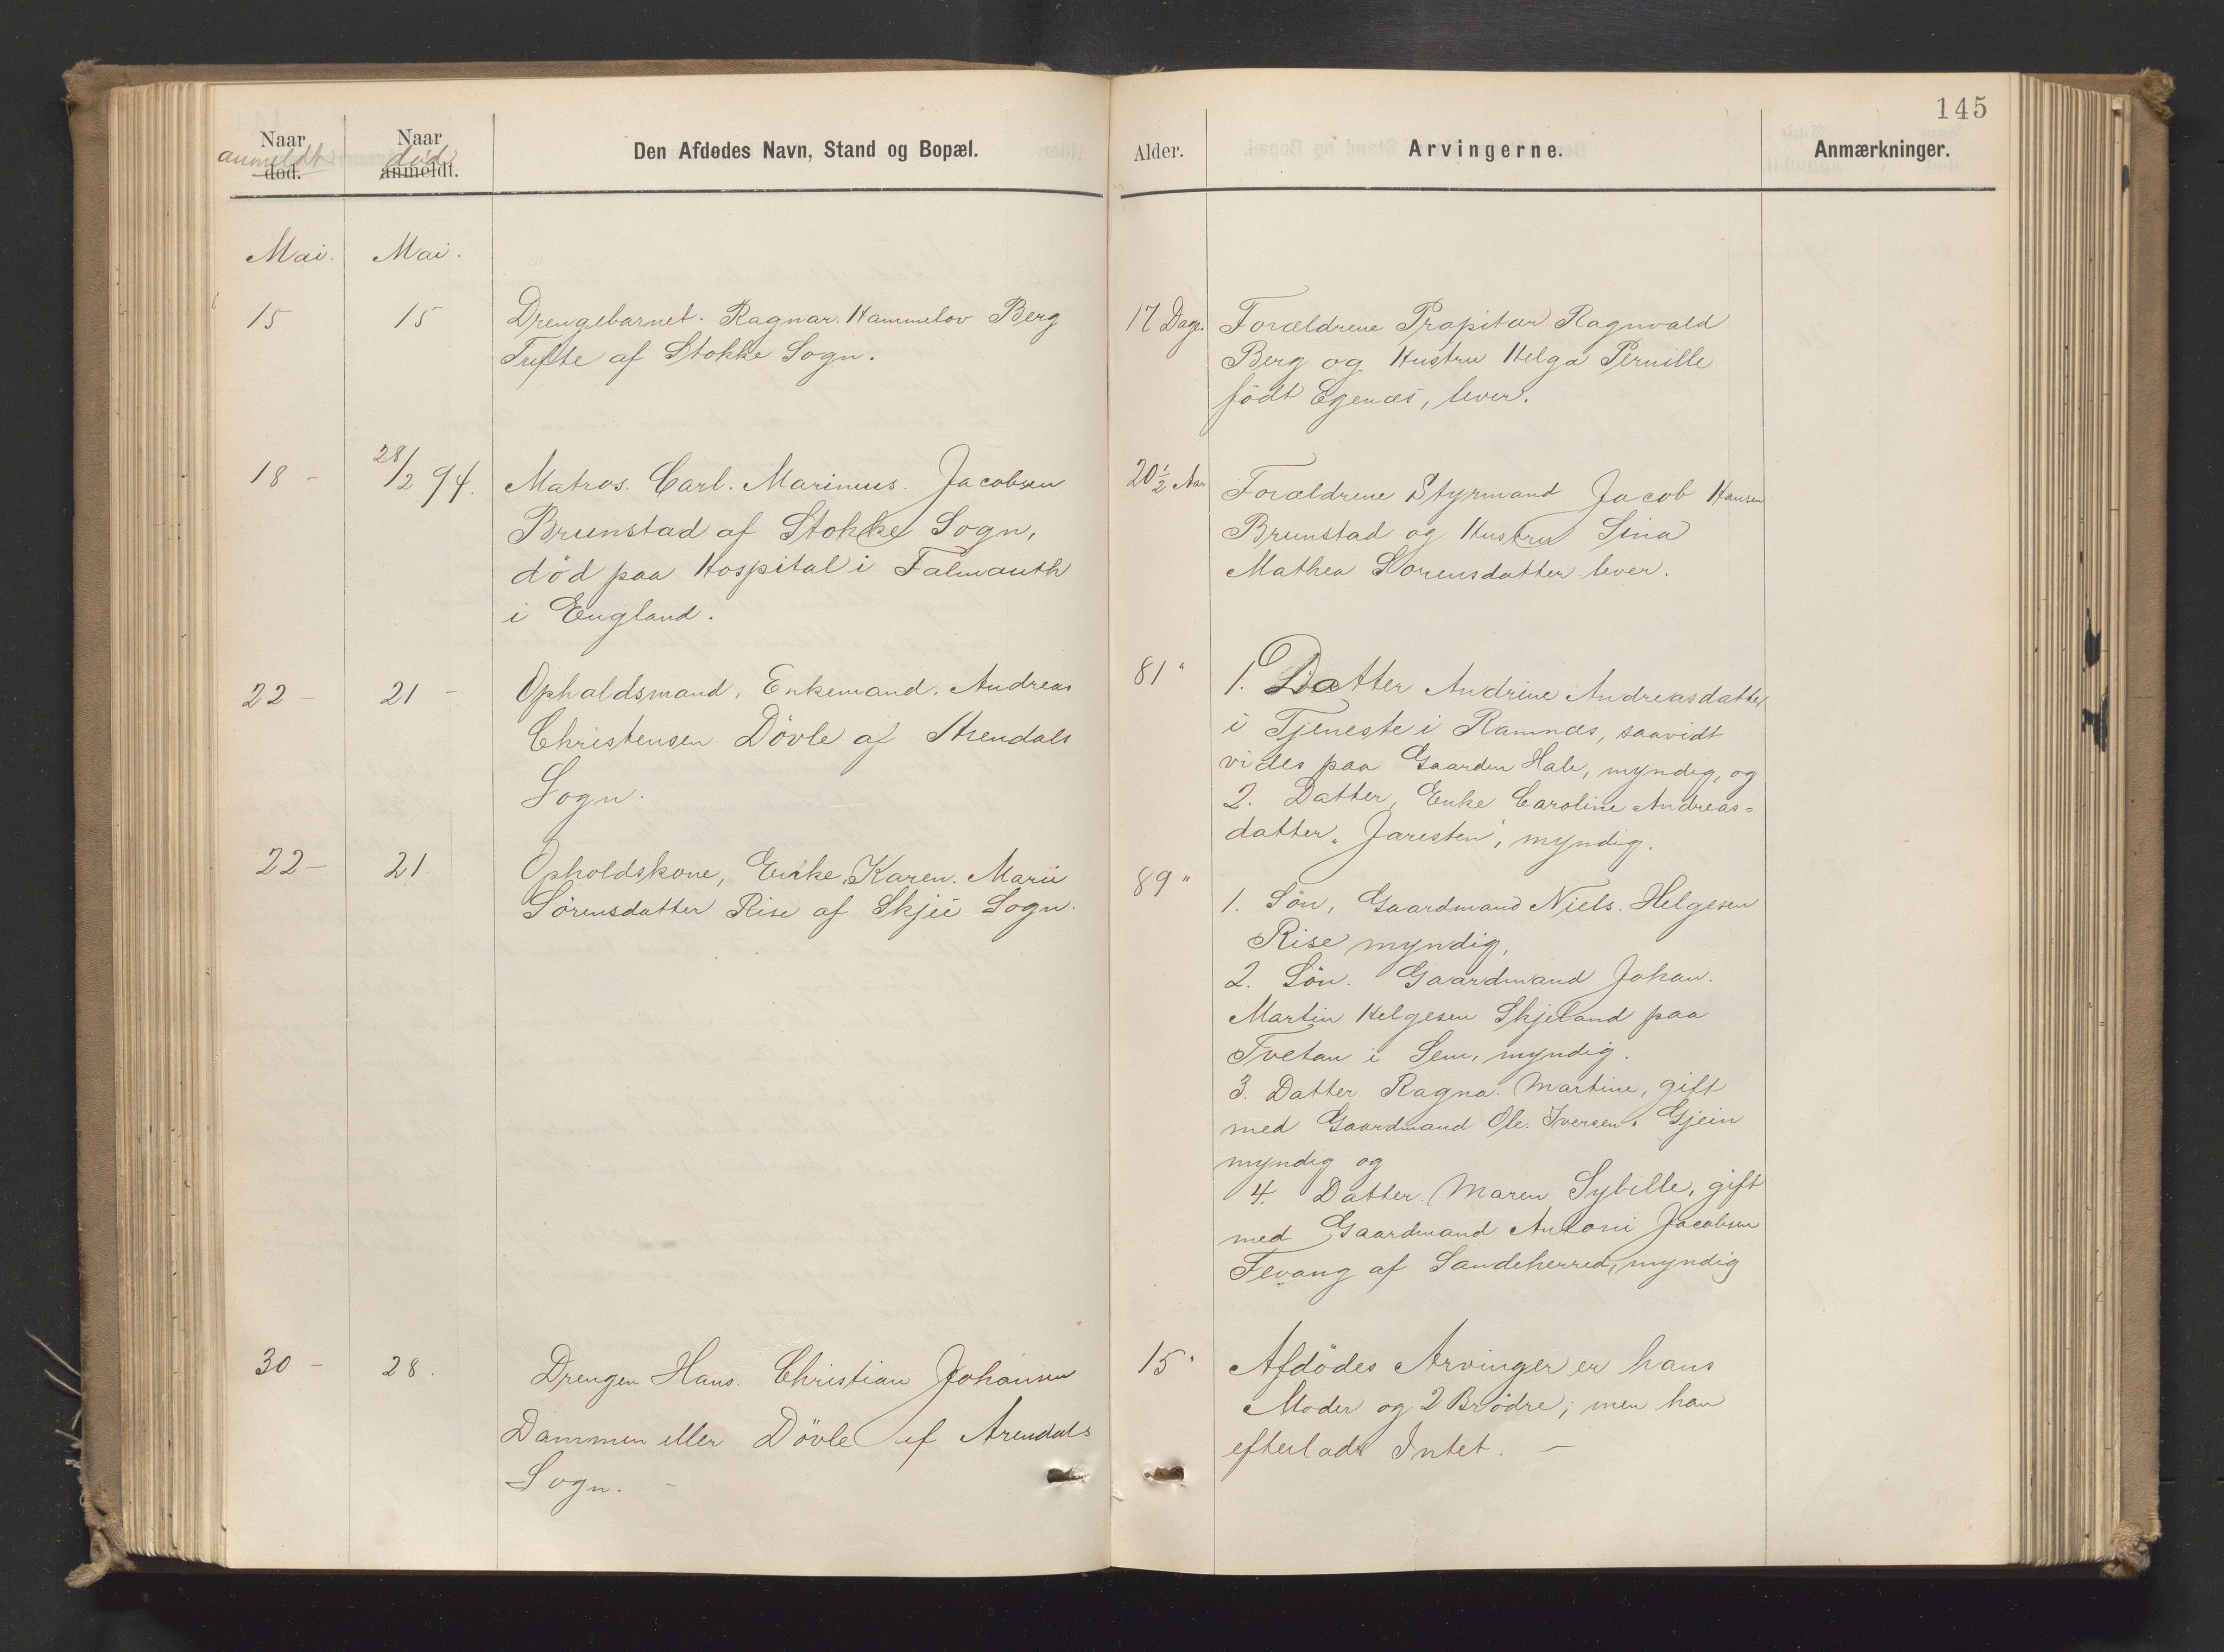 145
Naar anmeldt død.
Naar død anmeldt.
Den Afdødes Navn, Stand og Bopæl.
Alder.
Arvingerne.
Anmærkninger.
Mai. Mai.
15 15 Drengebarnet. Ragnar. Hammelov Berg
Tufte af Stokke Sogn.
17 Dage. Forældrene Propitær Ragnvald
Berg og Hustru Helga Pernille
født Egenæs, lever.
18 - 28/2 94. Matros. Carl. Marinius. Jacobsen
Brunstad af Stokke Sogn,
död paa Hospital i Falmauth
i England.
20 1/2 Aar Forældrene Styrmand Jacob Hansen
Brunstad og Hustru Sina
Mathea Sorensdatter lever.
22 - 21 - Opholdsmand, Enkemand. Andreas
Christensen Dövle af Arendals
Sogn.
81 " 1. Datter Andrine Andreasdatter
i Tjeneste i Ramnæs, saavidt
vides paa Gaarden Hale, myndig, og
2. Datter, Enke Caroline Andreas=
datter „Jaresten", myndig.
22 - 21 Opholdskone, Enke, Karen. Marie
Sörensdatter Rise af Skjee Sogn.
89 " 1. Sön, Gaardmand Niels. Helgesen
Rise myndig,
2. Sön. Gaardmand Johan.
Martin Helgesen Skjeland paa
Tvetan i Sem, myndig.
3. Datter. Ragna. Martine, gift
med Gaardmand Ole. Iversen. Gjein
myndig og
4. Datter. Maren Sybille, gift
med Gaardmand Antoni Jacobsen
Fevang af Sandeherred, myndig
30 - 28. Drengen Hans. Christian Johansen
Dammen eller Dövle af Arendals
Sogn. -
15 " Afdödes Arvinger er hans
Moder og 2 Brödre; men han
efterlader Intet. -